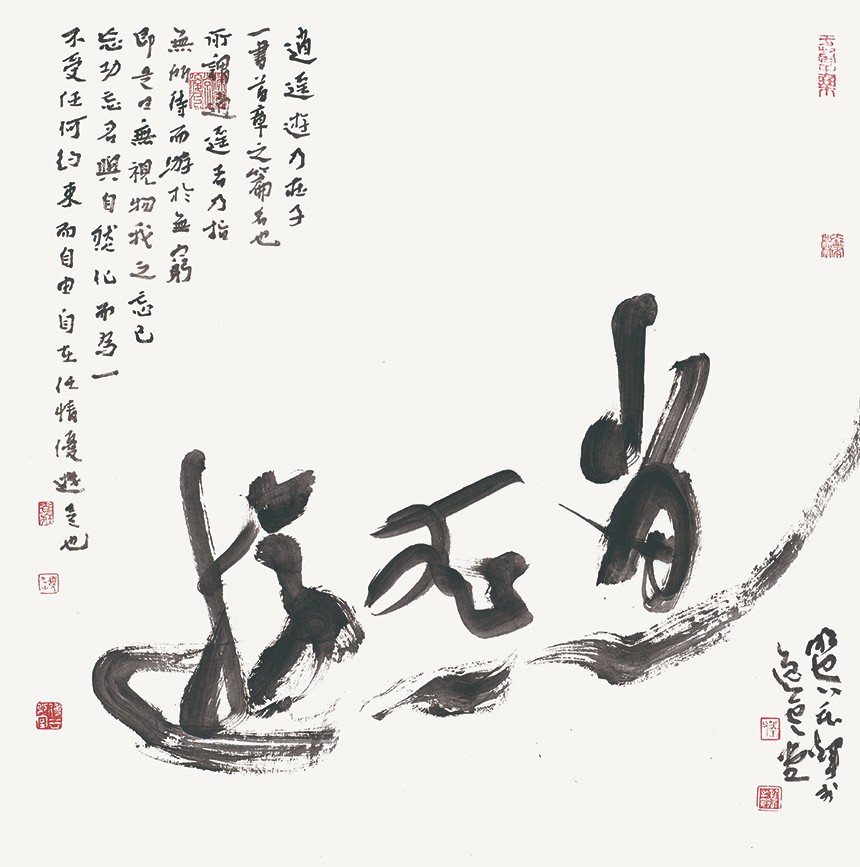 逍遙遊
逍遙遊乃莊子
一書首章之篇名也
所謂逍遙者乃指
無所待而游於無窮
即是曰無視物我之忘己
忘功忘名與自然化而為一
不受任何約束而自由自在任情優遊是也